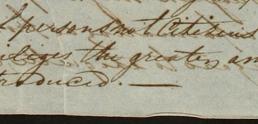 persons not Citizens
the greater an
troduced. —